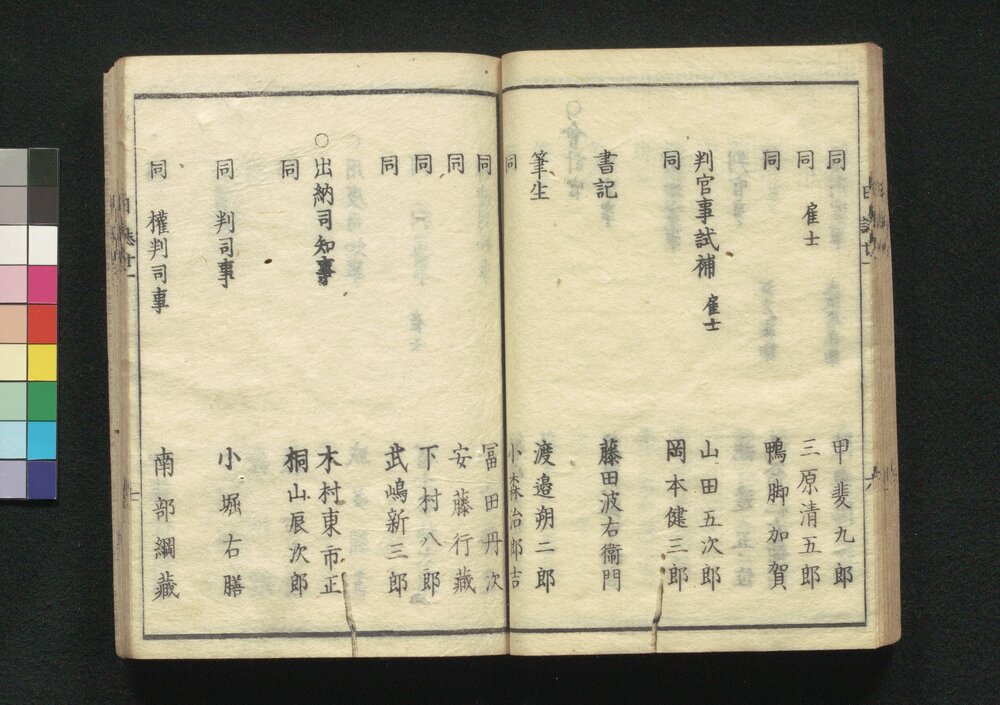 同 甲斐九郎
同 雇士 三原清五郎
同 鴨脚加賀
判官事試補 雇士 山田五次郎
同 岡本健三郎
書記 藤田波右衞門
筆生 渡邉朔二郎
同 小森治郎吉
同 冨田丹次
同 安藤行藏
同 下村八郎
同 武嶋新三郎
○出納司知事 木村東市正
同 桐山辰次郎
同 判司事 小堀右膳
同 權判司事 南部綱藏